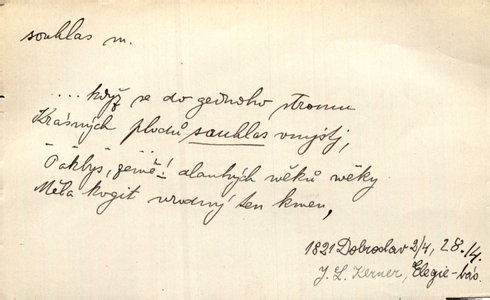 souhlas m.
.... když se do gednoho stromu
Krásných plodů souhlas vmýslj,
Takbys, země! dlauhých wěků wěky
Měla kogit vrodný ten kmen,
1821 Dobroslav 2/4, 28./4.
J. L. Kerner, Elegie-bás.